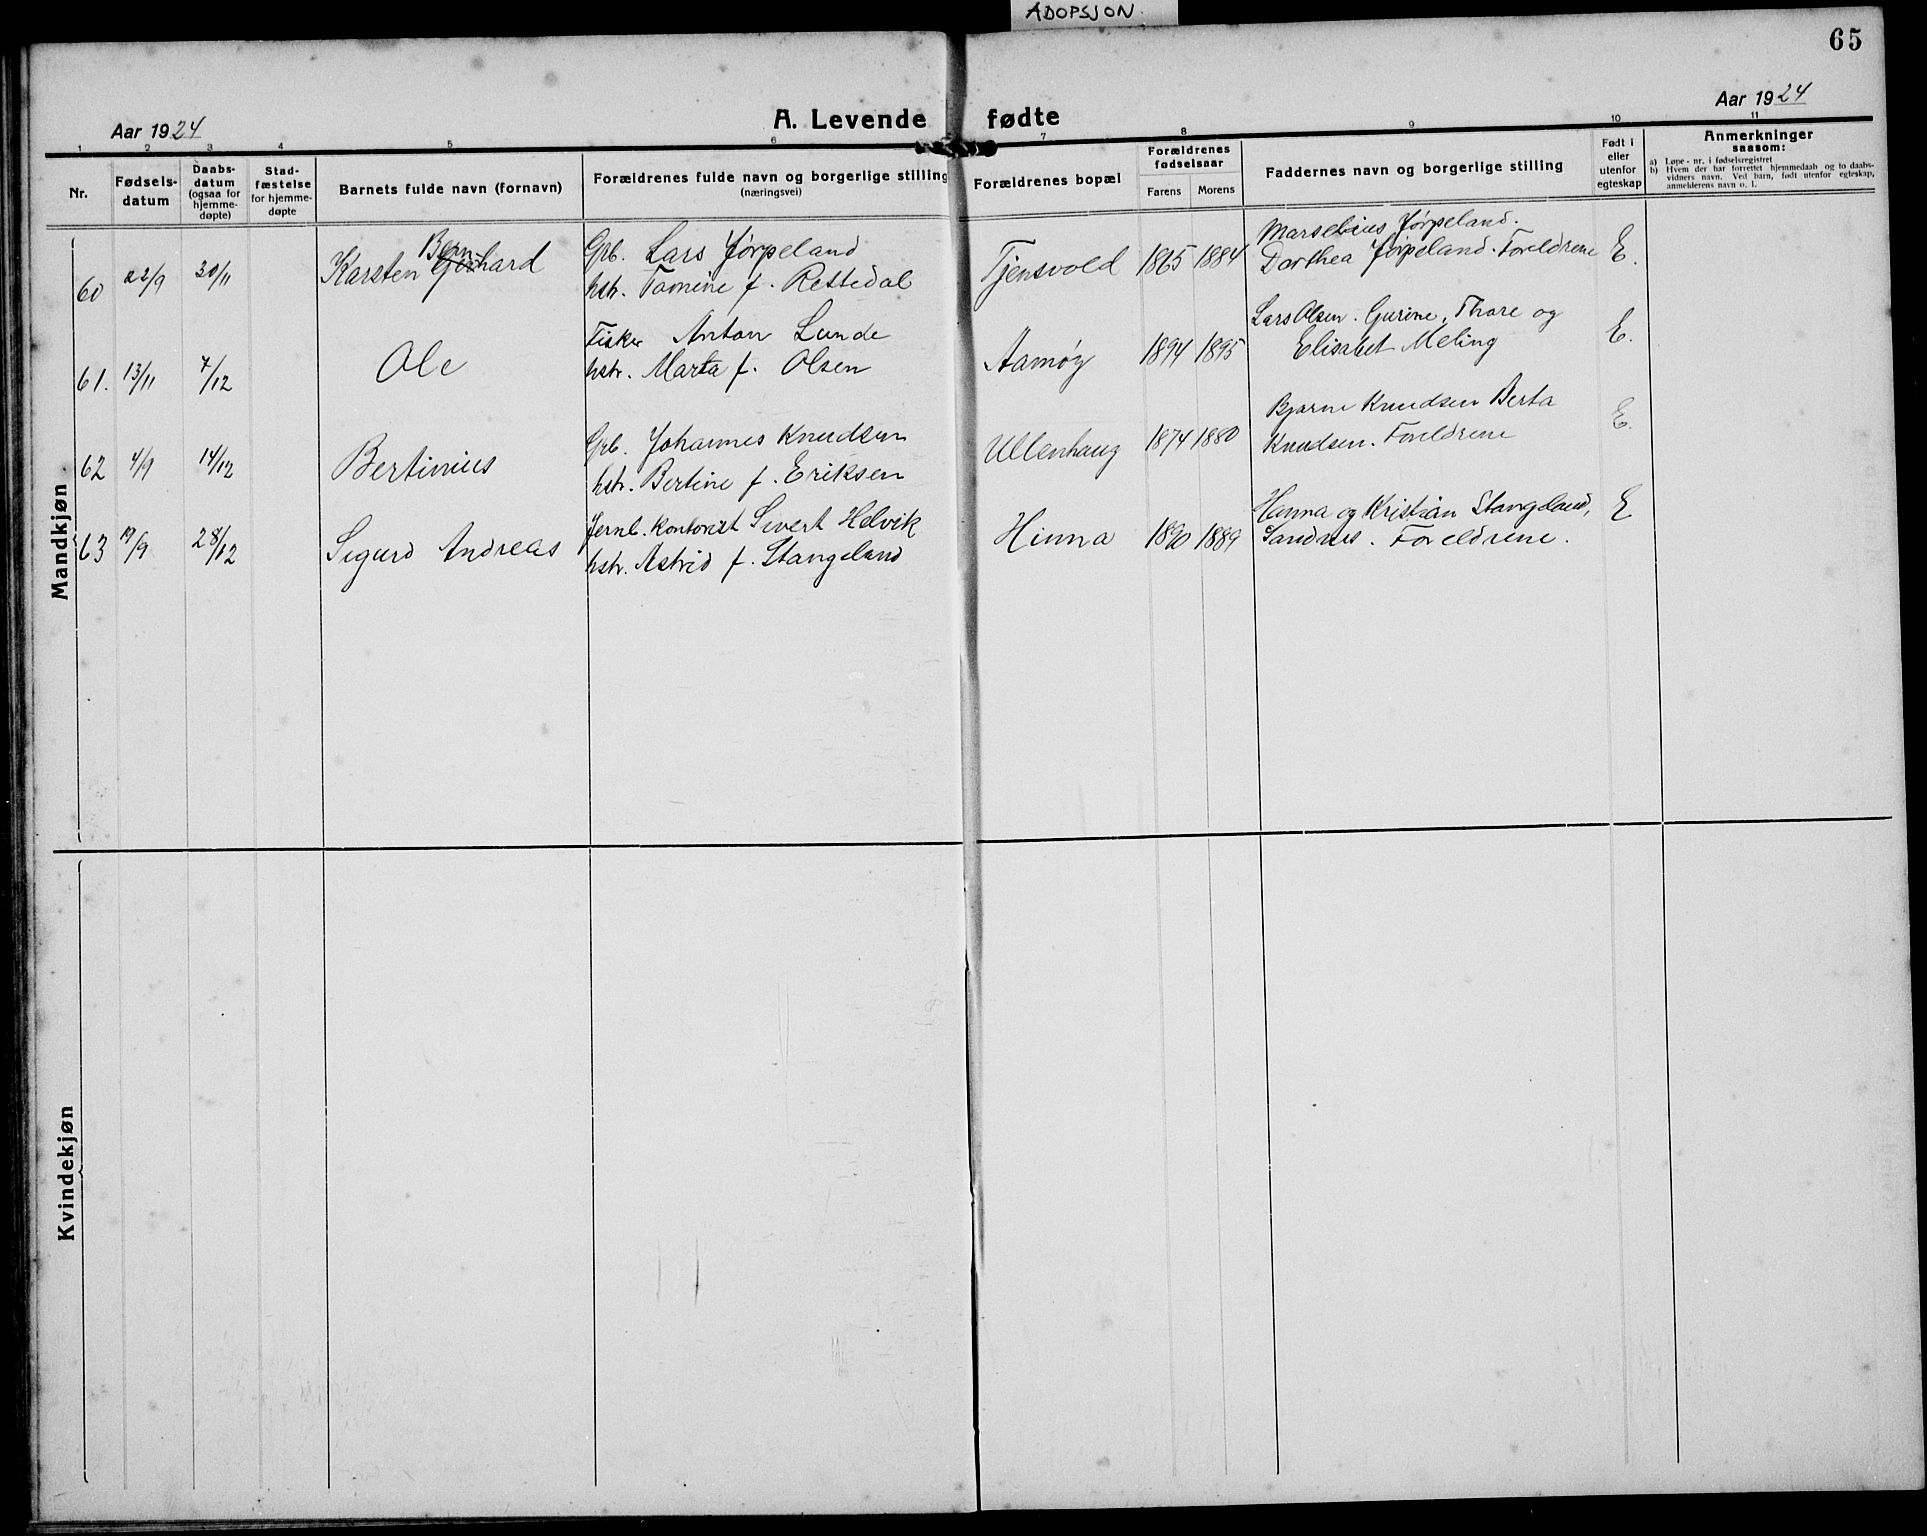 ADOPSJON.
65
Aar 1924
A. Levende fødte
Aar 1924
1 2 3 4 5 6 7 8 9 10 11
Nr.
Fødsels-
datum
Daabs-
datum
(ogsaa for
hjemme-
døpte)
Stad-
fæstelse
for hjemme-
døpte
Barnets fulde navn (fornavn)
Forældrenes fulde navn og borgerlige stilling
(næringsvei)
Forældrenes bopæl
Forældrenes
fødselsaar
Farens Morens
Faddernes navn og borgerlige stilling
Født i
eller
utenfor
egteskap
Anmerkninger
saasom:
a) Løpe-nr. i fødselsregistret
b) Hvem der har forrettet hjemmedaab og to daabs-
vidners navn. Ved barn, født utenfor egteskap,
anmelderens navn o. l.
Mandkjøn
60 22/9 30/11
Bern
Karsten Gerhard
Grb. Lars Jørpeland
hstr. Tomine f. Rettedal
Tjensvold 1865 1884
Marselius Jørpeland.
Dorthea Jørpeland. Foreldrene
E.
61. 13/11 7/12
Ole
Fisker Anton Lunde
hstr. Marta f. Olsen
Aamøy 1894 1895
Lars Olsen. Gurine, Thore og
Elisabet Meling
E.
62 4/9 14/12
Bertinius
Grb. Johannes Knudsen
hstr. Bertine f. Eriksen
Ullenhaug 1874 1880
Bjarne Knudsen Berta
Knudsen. Foreldrene
E.
63 19/9 28/12
Sigurd Andreas
Jernb. kontorist Sivert Helvik
hstr. Astrid f. Stangeland
Hinna 1890 1889
Hanna og Kristian Stangeland,
Sandnes. Foreldrene.
E
Kvindekjøn